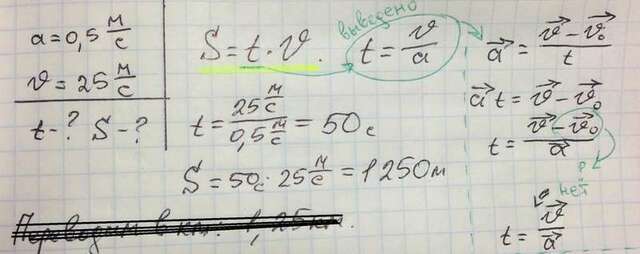 a = 0,5 м/с
v = 25 м/с
t - ? S - ?
S = t · v.
t = v/a
выведено
t = 25 м/с / 0,5 м/с = 50 с
S = 50с · 25 м/с = 1250 м
a⃗ = (v⃗ - v⃗₀)/t
a⃗t = v⃗ - v⃗₀
t = (v⃗ - v⃗₀)/a⃗
нет
t = v⃗/a⃗